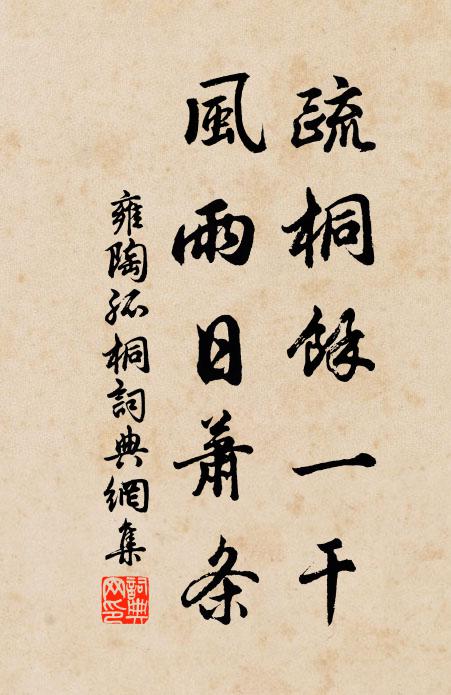 疏桐餘一干
風雨日蕭条
雍陶孤桐詞典網集
詞典网印